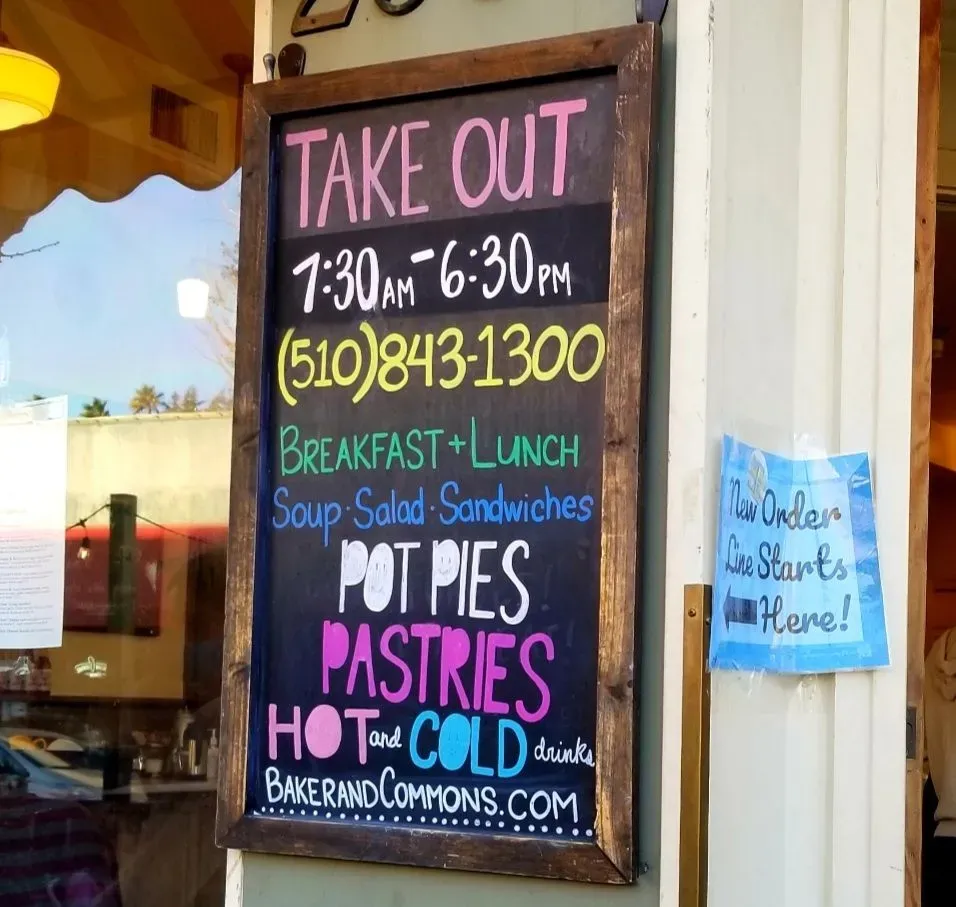 TAKE OUT
7:30AM-6:30PM
(510)843-1300
BREAKFAST+LUNCH
Soup·Salad·Sandwiches
POT PIES
PASTRIES
HOT and COLD drinks
BAKERANDCOMMONS.COM
New Order
Line Starts
Here!